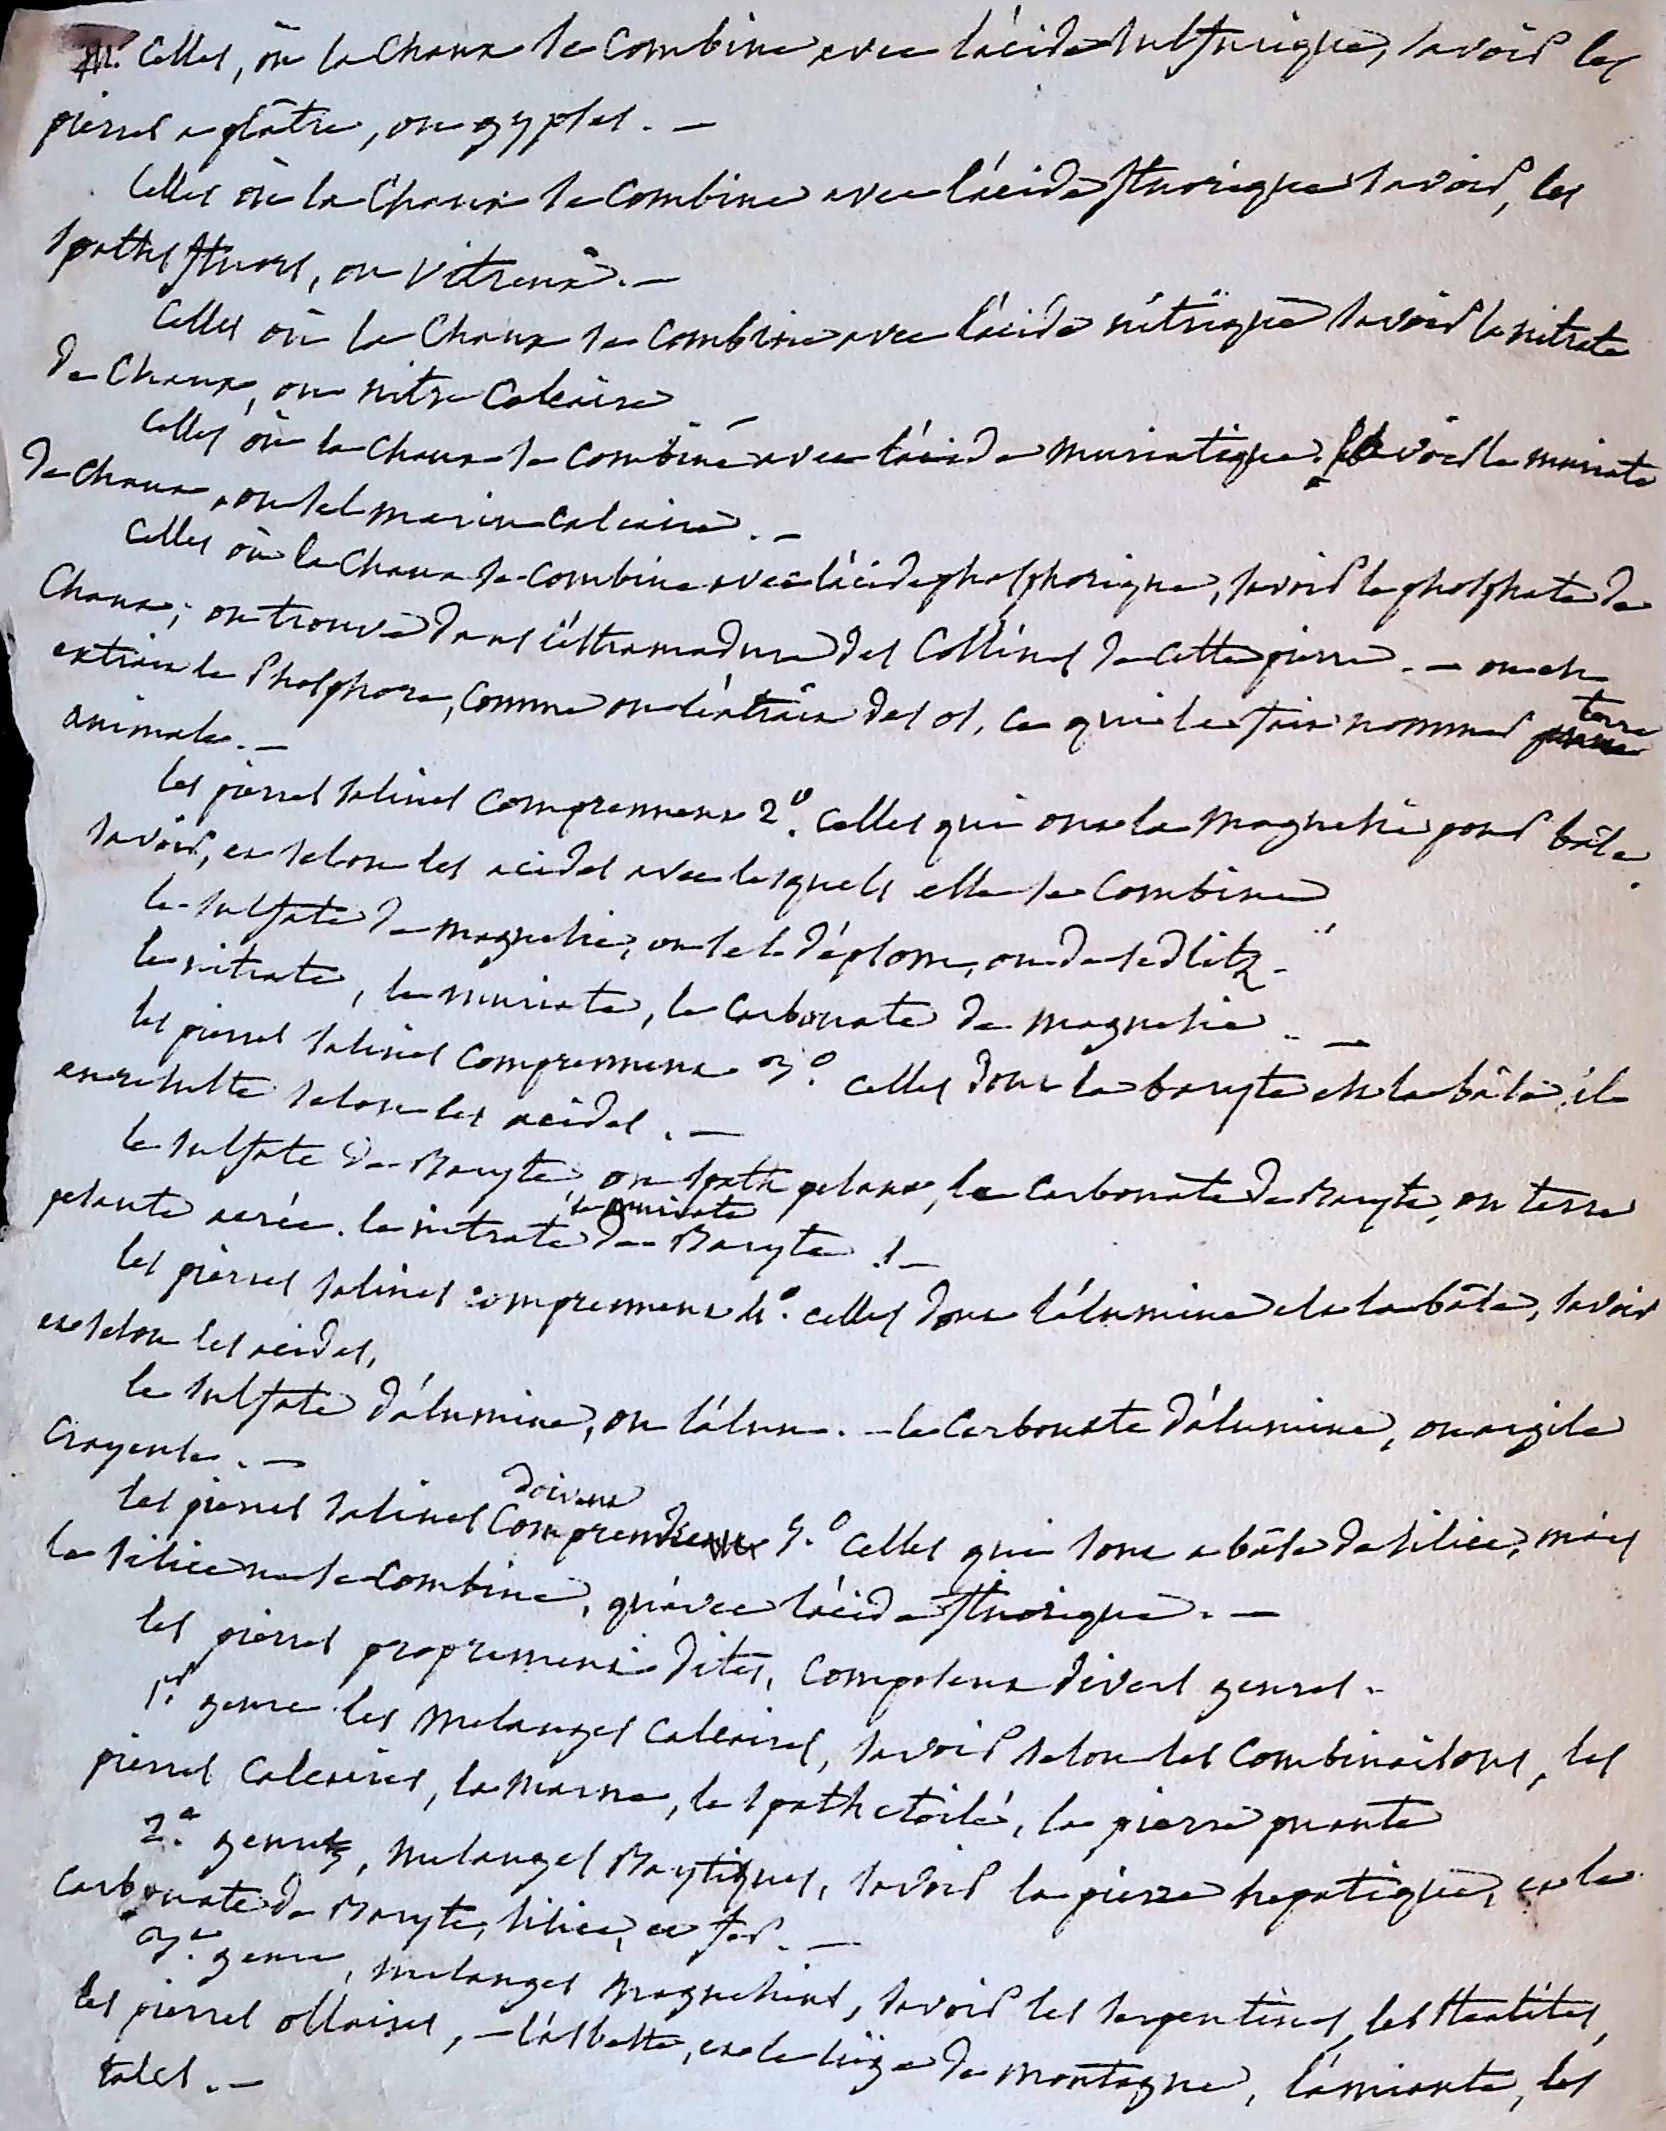 Celles, où la Chaux se combine avec l'acide sulfurique, savoir les
pierres a plâtre, ou gypses. —
Celles où la Chaux se combine avec l'acide fluorique savoir, les
spaths fluors, ou vitreux. —
Celles où la Chaux se combine avec l'acide nitrique savoir le nitrate
de Chaux, ou nitre Calcaire
Celles où la Chaux se combine avec l'acide muriatique. savoir le muriate
de Chaux, ou sel marin calcaire. —
Celles où la Chaux se combine avec l'acide phosphorique, savoir le phosphate de
Chaux; on trouve dans l'estramadure des Collines de cette pierre. — on en
extrait le Phosphore, comme on l'extrait des os, ce qui le fait nommer terre
animale. —
les pierres salines comprennent 2º. celles qui ont la magnesie pour bâse.
savoir, et selon les acides avec lesquels elle se combine
le sulfate de magnesie, ou sel d'epsom, ou de sedlitz —
le nitrate, le muriate, le carbonate de magnesie. —
les pierres salines comprennent 3º. celles dont la baryte est la bâse, il
en resulte selon les acides. —
le sulfate de Baryte ou spath pesant, le carbonate de Baryte, ou terre
pesante aerée. le nitrate, le muriate de Baryte. —
les pierres salines comprennent 4º. celles dont l'alumine est la bâse, savoir
et selon les acides,
le sulfate d'alumine, ou l'alun. — le Carbonate d'alumine, ou argile
Crayeuse. —
les pierres salines doivent comprendre 5.º celles qui sont a bâse de silice, mais
la silice ne se combine, qu'avec l'acide fluorique. —
les pierres proprement dites, composent divers genres.
1r. genre les melanges calcaires, savoir selon les combinaisons, les
pierres calcaires, la marne, le spath etoilé, la pierre puante
2.e genre, melanges Barytiques, savoir la pierre hepatique, et le
Carbonate de Baryte, silice, et fer. —
3.e genre, melanges magnesiens, savoir les serpentines, les steatites,
les pierres ollaires, — l'asbeste, et le liége de montagne, l'amiante, les
talcs. —